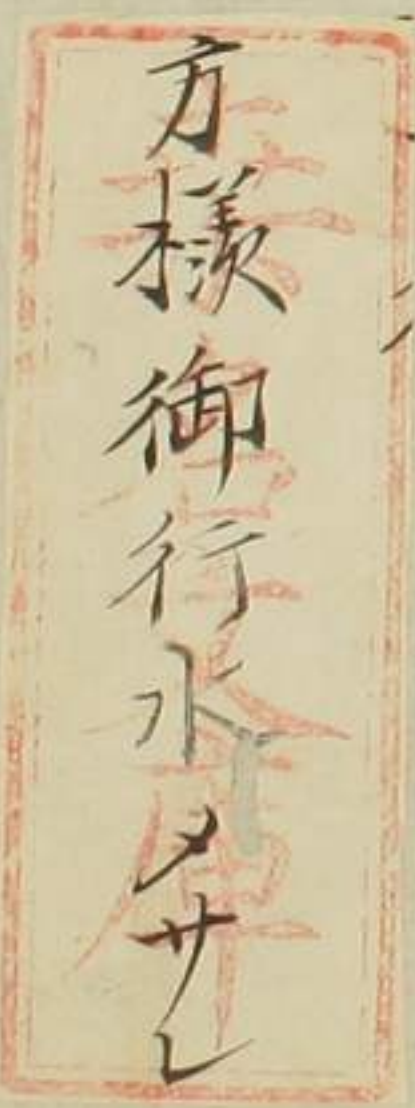 方様御行水メサレ